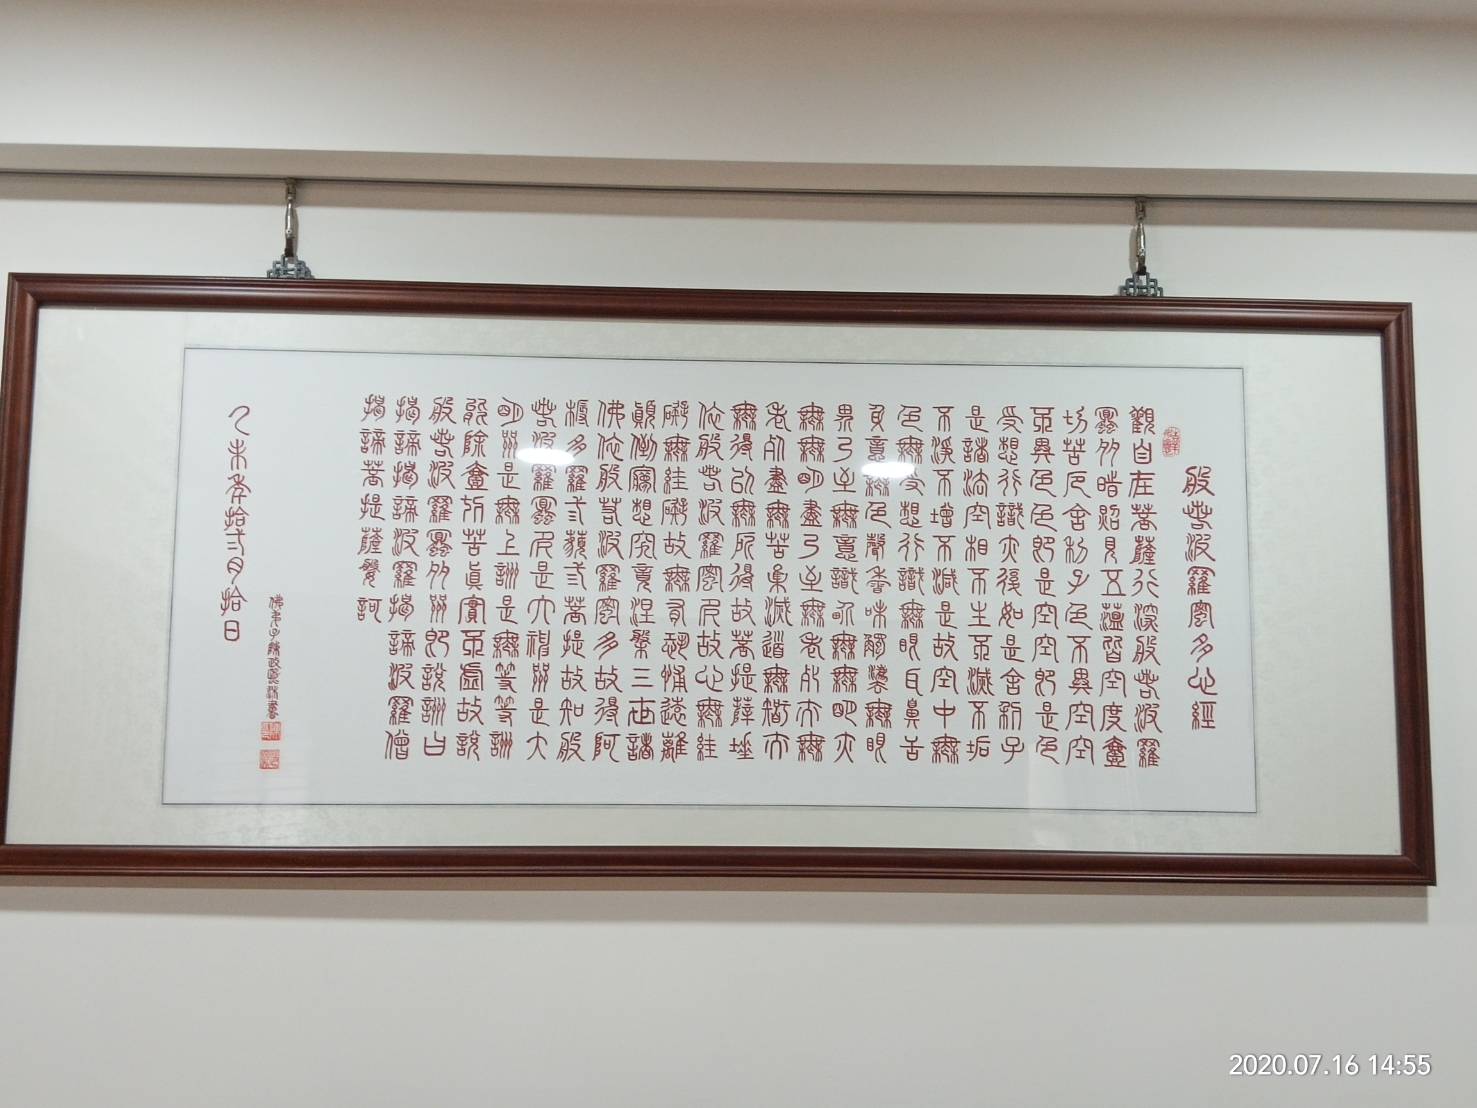 般若波羅蜜多心經
觀自在菩薩行深般若波羅
蜜多時照見五蘊皆空度壹
切苦厄舍利子色不異空空
不異色色即是空空即是色
受想行識亦復如是舍利子
是諸法空相不生不滅不垢
不淨不增不減是故空中無
色無受想行識無眼耳鼻舌
身意無色聲香味觸法無眼
界乃至無意識界無無明亦
無無明盡乃至無老死亦無
老死盡無苦集滅道無智亦
無得以無所得故菩提薩埵
依般若波羅蜜多故心無罣
礙無罣礙故無有恐怖遠離
顛倒夢想究竟涅槃三世諸
佛依般若波羅蜜多故得阿
耨多羅弎藐弎菩提故知般
若波羅蜜多咒是大神咒是大
明咒是無上咒是無等等咒
能除壹切苦真實不虛故說
般若波羅蜜多咒即說咒曰
揭諦揭諦波羅揭諦波羅僧
揭諦菩提薩婆訶
乙未年拾弍月拾日
佛弟子陳政賢書
2020.07.16 14:55